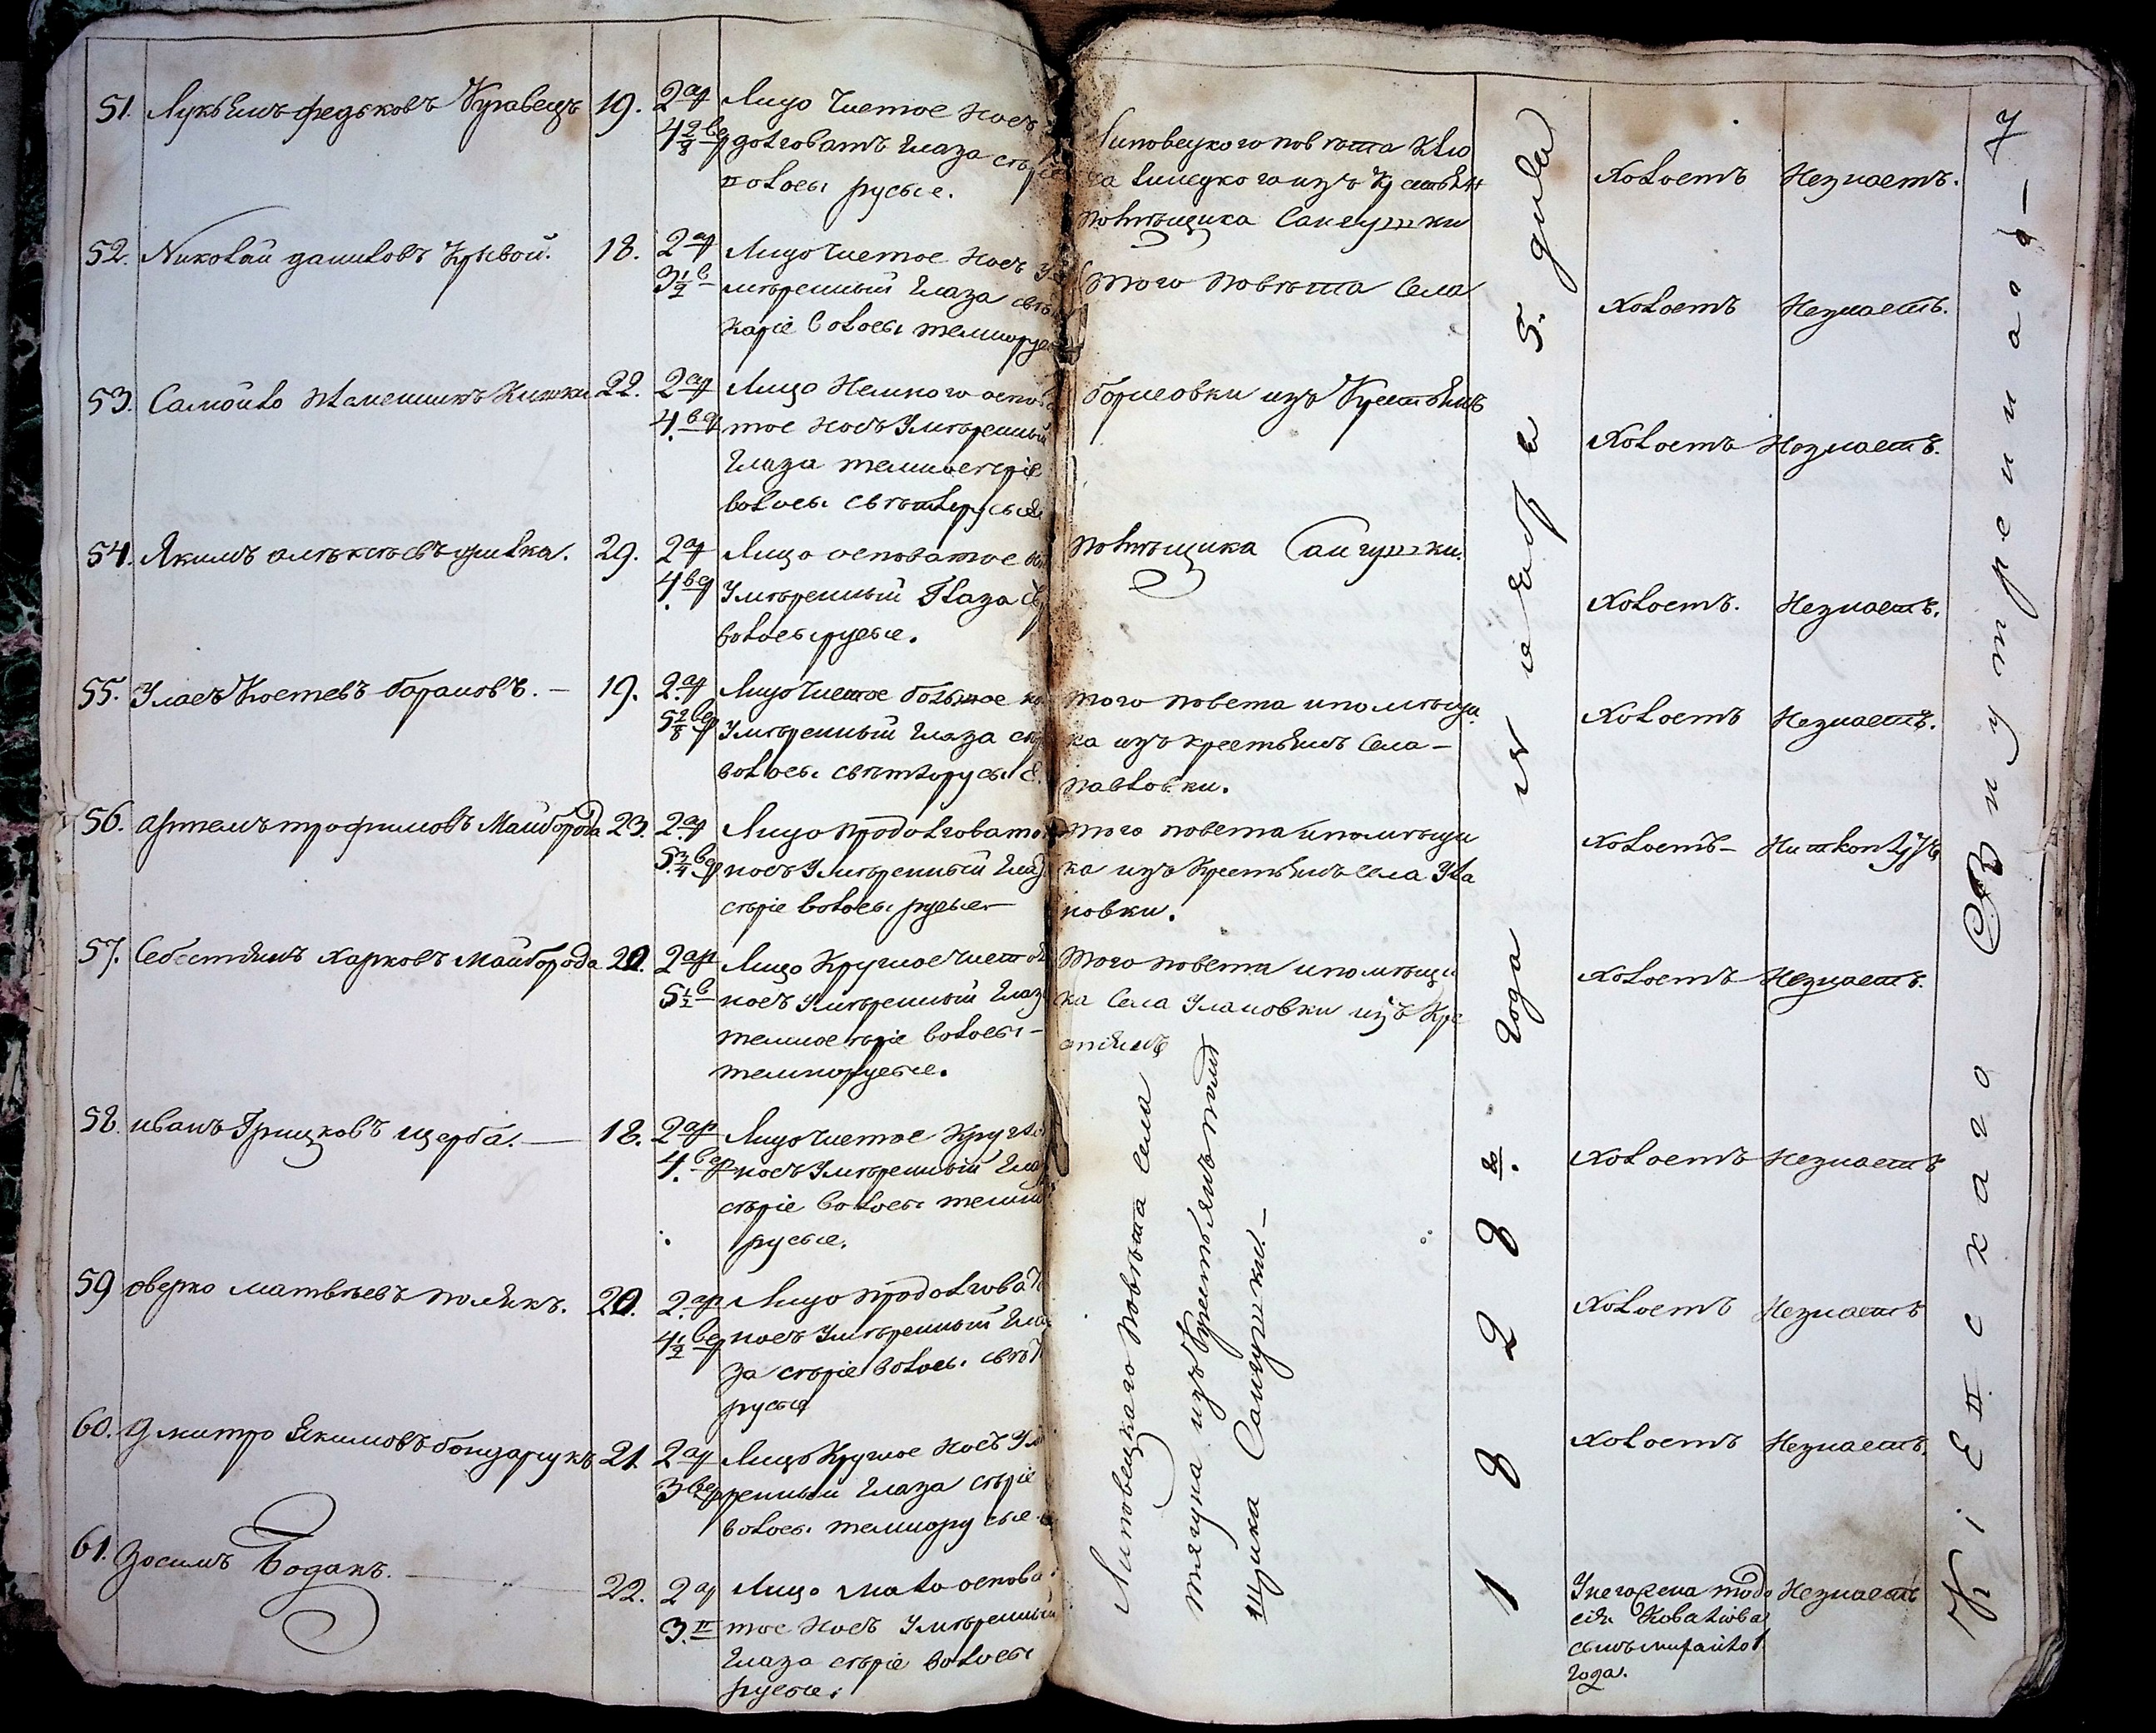 51. Лукьянъ федьковъ Кравецъ 19. 2 ар 4 2/8 вер
Лицо Чистое Носъ
долговатъ Глаза
волосы русые.
Липовецкого повѣта Клю
ча Линецкого изъ Крестьян
помѣщика Сангушки
Холостъ Незнаетъ.
52. Николай даниловъ Кривой. 18. 2 ар 3 1/2 в
Лицо Чистое Носъ У
мѣренный Глаза свѣт
каріе Волосы темнорусые
того повѣта Села
Холостъ Незнаетъ.
53. Самойло 22. 2 ар 4. вер
Лицо Немного оспова
тое Носъ Умѣренный
Глаза темносѣріе
волосы свѣтлорусые
борисовки изъ Крестьянъ
Холостъ Незнаетъ.
54. Якимъ алѣксѣевъ 29. 2 ар 4 вер
Лицо осповатое
Умѣренный Глаза
волосы русые.
помѣщика Сангушки.
Холостъ. Незнаетъ.
55. Уласъ Костевъ барановъ. — 19. 2. ар 5 2/8 вер
Лицо Чистое большое
Умѣренный Глаза
волосы свѣтлорусые.
того повета ипомѣщи
ка изъ крестьянъ Села —
павловки.
Холостъ Незнаетъ.
56. артемъ трофимовъ Майборода 23. 2. ар 5. 3/4 вер
Лицо продолговато
носъ Умѣренный Глаз
сѣріе волосы русые —
того повета ипомѣщи
ка изъ Крестьянъ Села Ула
новки.
Холостъ —
57. Себестіянъ харковъ майборода 20. 2 ар 5 1/2 в
Лицо Круглое Чисто
носъ Умѣренный Глаз
темносѣріе волосы —
темнорусые.
того повета ипомѣщи
ка Села Улановки изъ Кре
стіянъ
Холостъ Незнаетъ.
58. иванъ Грицковъ щерба. — 18. 2 ар 4. вер
Лицо Чистое Кругло
носъ Умѣренный Гла
сѣріе волосы темно
русые.
Холостъ Незнаетъ
59 оверко матвѣевъ полякъ. 20. 2. ар 4 1/2 вер
Лицо продолговат
носъ Умѣренный Гла
за сѣріе волосы свѣт
русые
Холостъ Незнаетъ
60. дмитро Якимовъ бондарчукъ 21. 2 ар 3 вер
Лицо Круглое Носъ Умѣ
ренный Глаза сѣріе
волосы темнорусые
Холостъ Незнаетъ.
61. Зосимъ Бодакъ. — 22. 2 ар 3.
Лицо мало оспова
тое Носъ Умѣренный
Глаза сѣріе волосы
русые.
Липовецкаго повѣта Села
тягуна изъ Крестьянъ помѣ
щика Сангушки. —
Унего жена тодо
сія Ковалова
сынъ михайло 1
Года.
Незнаетъ
1 8 2 8. Года ноября 5. дня
Кіевскаго Внутренняго — 7